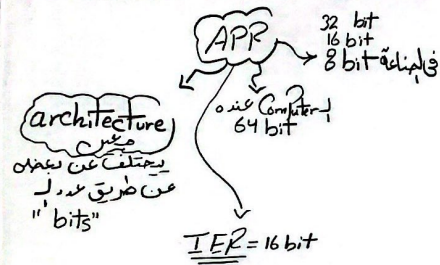 APR
32 bit
16 bit
8 bit في الصناعة
الـ Computer عنده
64 bit
architecture
معين
يختلف عن بعضه
عن طريق عدد الـ
"bits"
IER = 16 bit